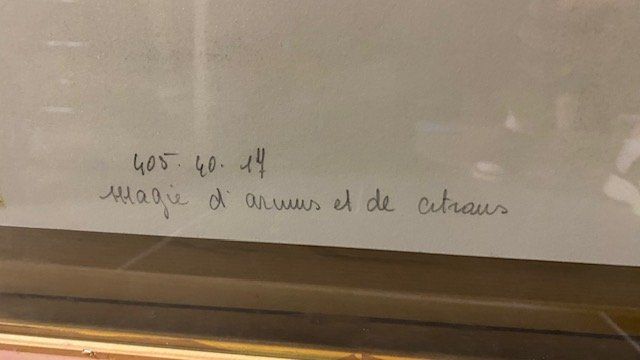 405. 40. 17
Magie d'arums et de citrons